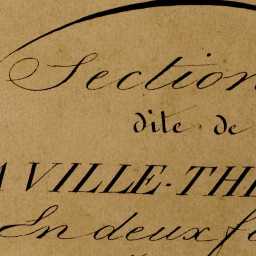 Section
dite de
A VILLE-TH
En deux f